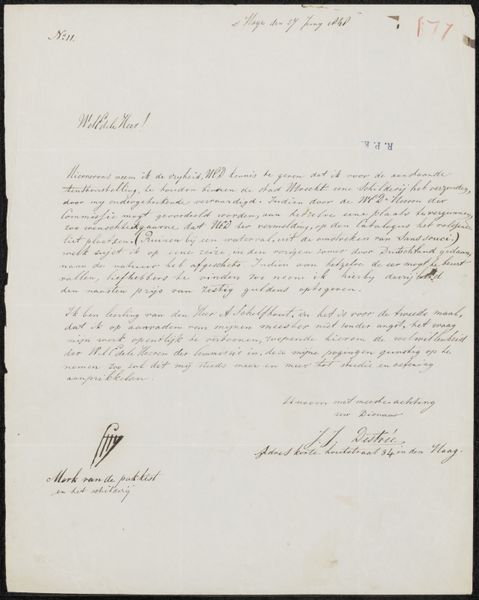 No: 11.
s'Hage den 27 Juny 1848
177
WelEdele Heer!
R. P. K.
Hiernevens neem ik de vryheid, UED kennis te geven dat ik voor de aanstaande
tentoonstelling, te houden binnen de stad Utrecht eene Schildery heb verzonden,
door my ondergetekende vervaardigd. Indien door de WED Heeren der
Commissie mogt geoordeeld worden, aan hetzelve eene plaats te vergunnen,
zoo wensch ik gaarne dat UED der vermelding, op den Catalogus het volgende
liet plaatsen. (Ruinen by een waterval, uit de omstreken van Sanssouci)
welk sujet ik op eene reize in den vorigen zomer door Duitschland gedaan,
naar de natuur heb afgeschetst. Indien aan hetzelve de eer mogt te beurt
vallen, liefhebbers te vinden zoo neem ik hierby de vryheid
den naasten prijs van zestig guldens optegeven.
Ik ben leerling van den Heer A Schelfhout, en het is voor de tweede maal,
dat ik op aanraden van mynen meester niet zonder angst, het waag
myn werk openlyk te vertoonen, roepende hierom de welwillenheid
der WelEdele Heeren der Commissie in, deze myne pogingen gunstig op te
nemen zoo zal dit my steeds meer en meer tot studie en oefening
aanprikkelen.
Uw Dienaar
J. J. Destrée
Adres korte houtstraat 34 in den Haag.
Merk van de pakkist
en het schildery